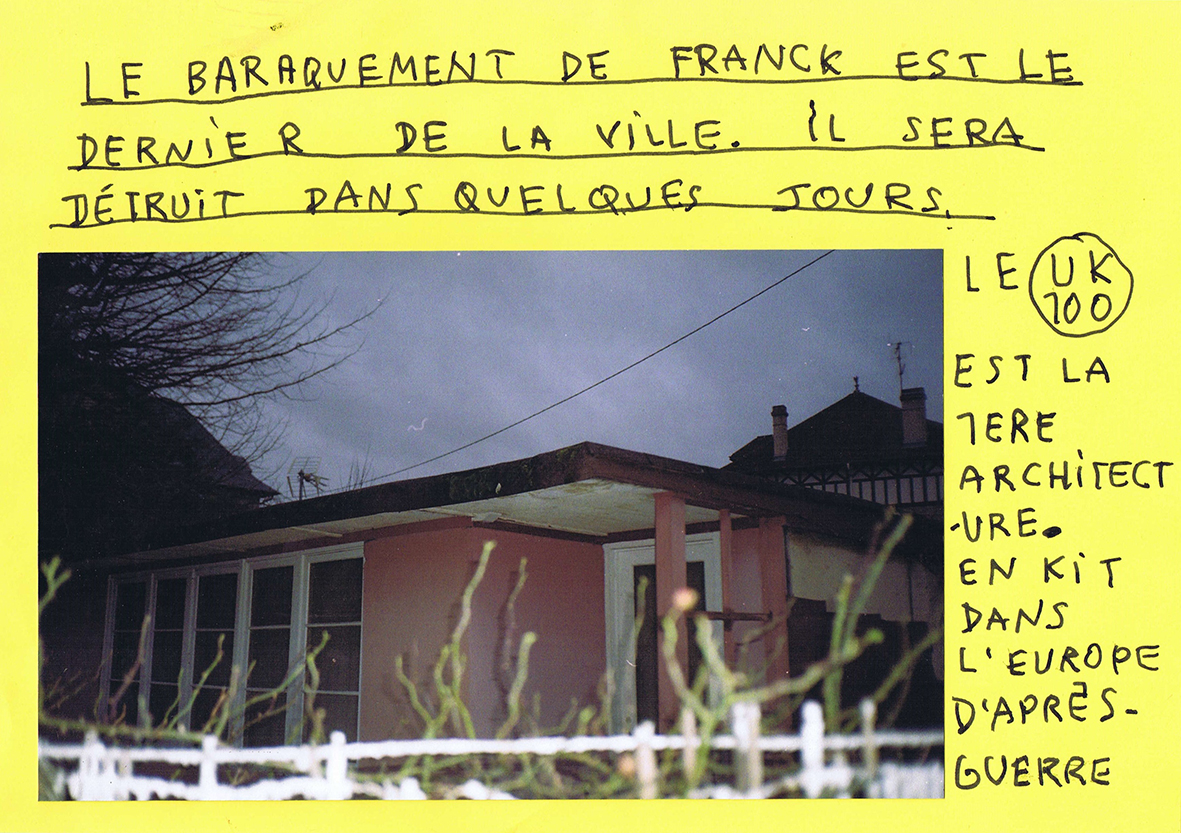 LE BARAQUEMENT DE FRANCK EST LE
DERNIER DE LA VILLE. IL SERA
DÉTRUIT DANS QUELQUES JOURS.
LE UK
100
EST LA
1ERE
ARCHITECT
-URE.
EN KIT
DANS
L'EUROPE
D'APRÈS-
GUERRE